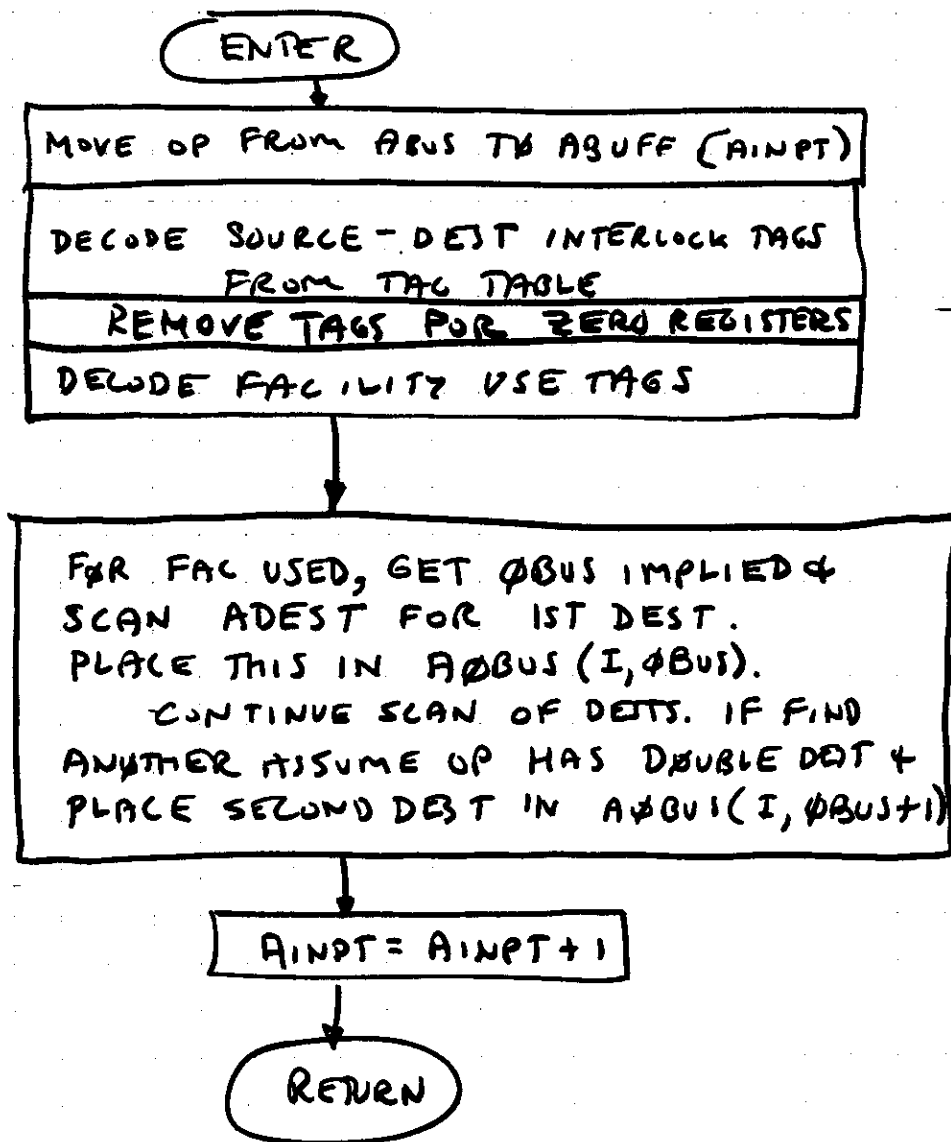 ENTER
MOVE OP FROM ABUS TØ ABUFF (AINPT)
DECODE SOURCE - DEST INTERLOCK TAGS
FROM TAG TABLE
REMOVE TAGS FOR ZERO REGISTERS
DECODE FACILITY USE TAGS
FØR FAC USED, GET ØBUS IMPLIED &
SCAN ADEST FOR 1ST DEST.
PLACE THIS IN AØBUS (I, ØBUS).
CONTINUE SCAN OF DESTS. IF FIND
ANØTHER ASSUME OP HAS DØUBLE DEST &
PLACE SECOND DEST IN AØBUS (I, ØBUS+1)
AINPT = AINPT + 1
RETURN